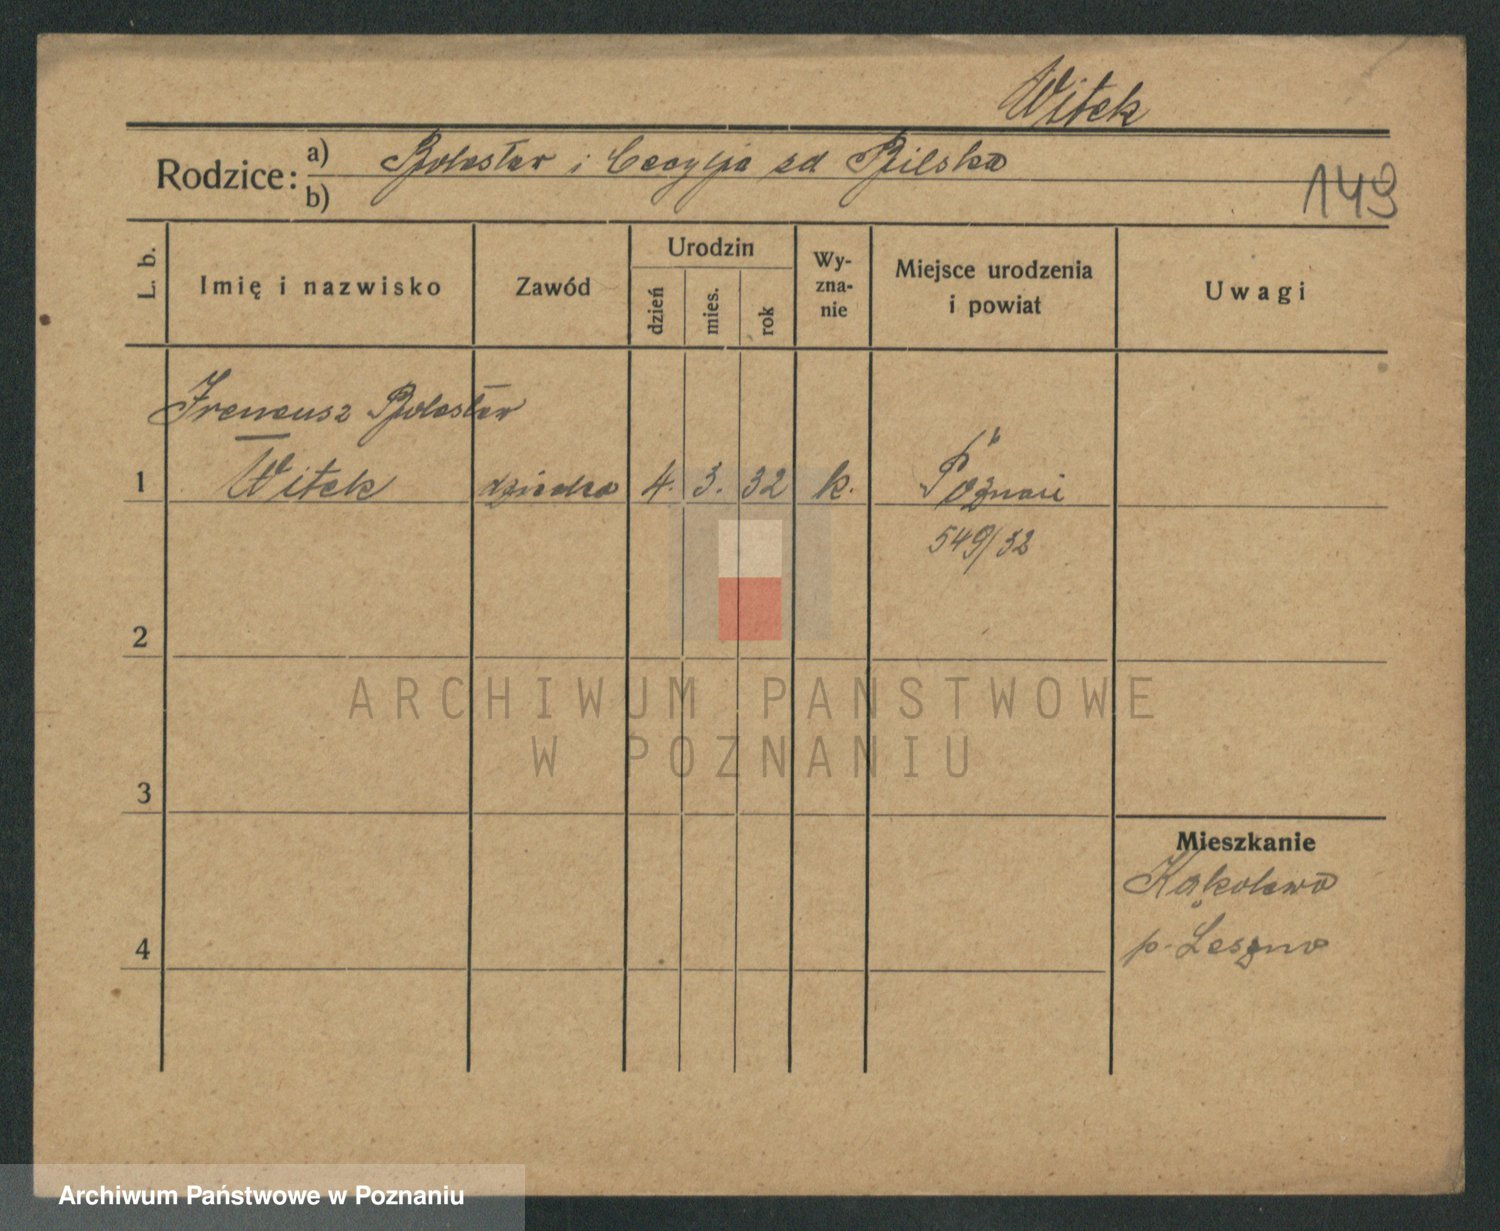 Witek
Rodzice: a) Bolesław i Cecylja zd Bilska
b)
149
L. b.
Imię i nazwisko
Zawód
Urodzin
dzień
mies.
rok
Wy-
zna-
nie
Miejsce urodzenia
i powiat
Uwagi
Ireneusz Bolesław
1 Witek dziecko 4. 3. 32 k. Poznań
549/32
2
3
4
Mieszkanie
Kąkolewo
p. Leszno
ARCHIWUM PAŃSTWOWE
W POZNANIU
Archiwum Państwowe w Poznaniu